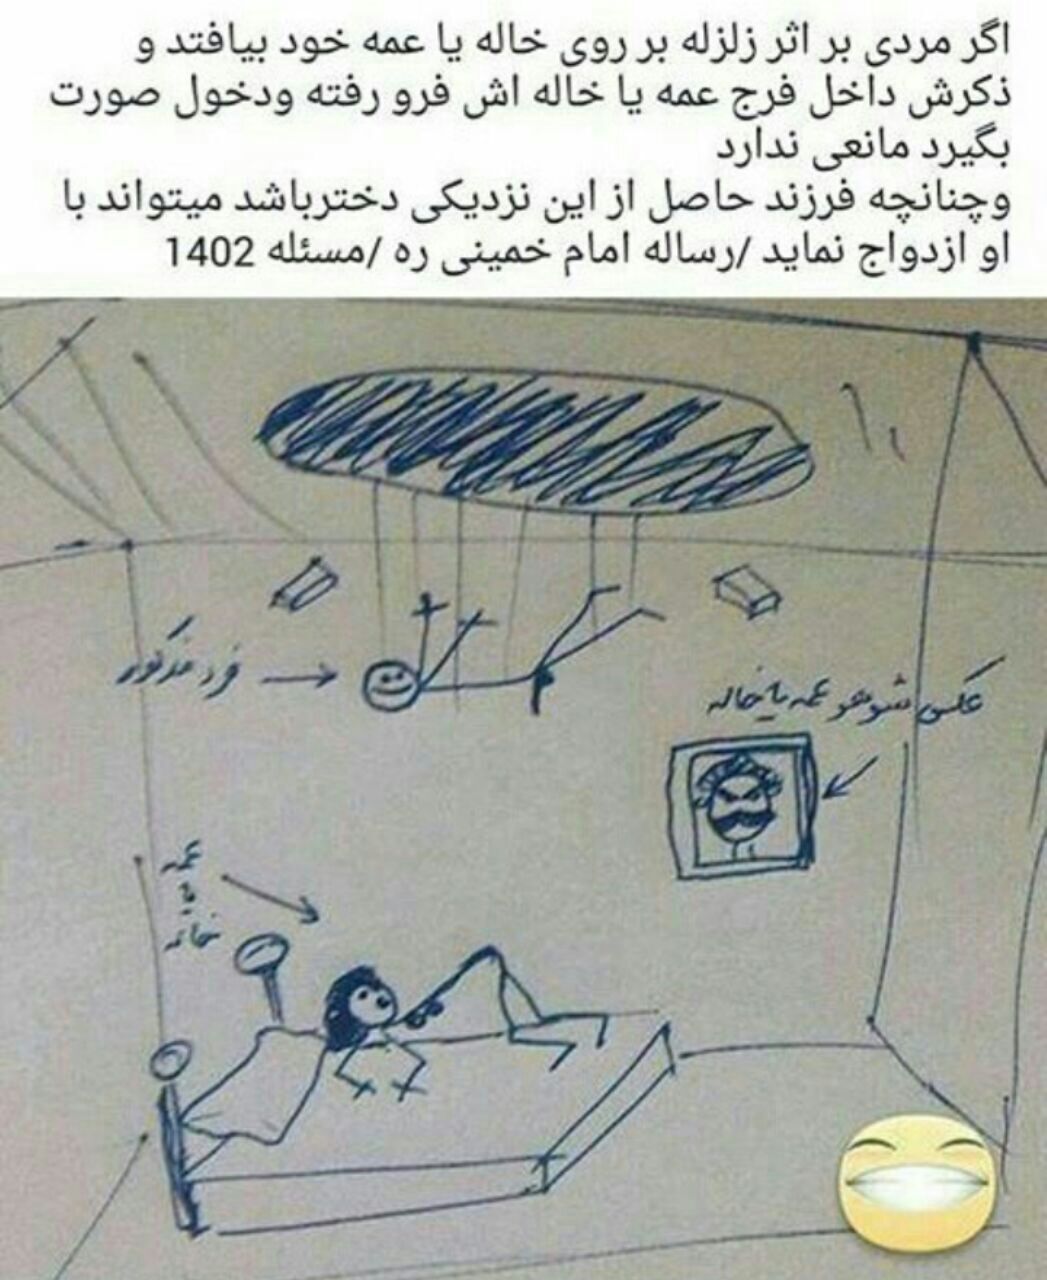 اگر مردی بر اثر زلزله بر روی خاله یا عمه خود بیافتد و
ذکرش داخل فرج عمه یا خاله اش فرو رفته ودخول صورت
بگیرد مانعی ندارد
وچنانچه فرزند حاصل از این نزدیکی دخترباشد میتواند با
او ازدواج نماید /رساله امام خمینی ره /مسئله 1402
فرد مذکور
عکس شوهر عمه یا خاله
عمه
یا
خاله